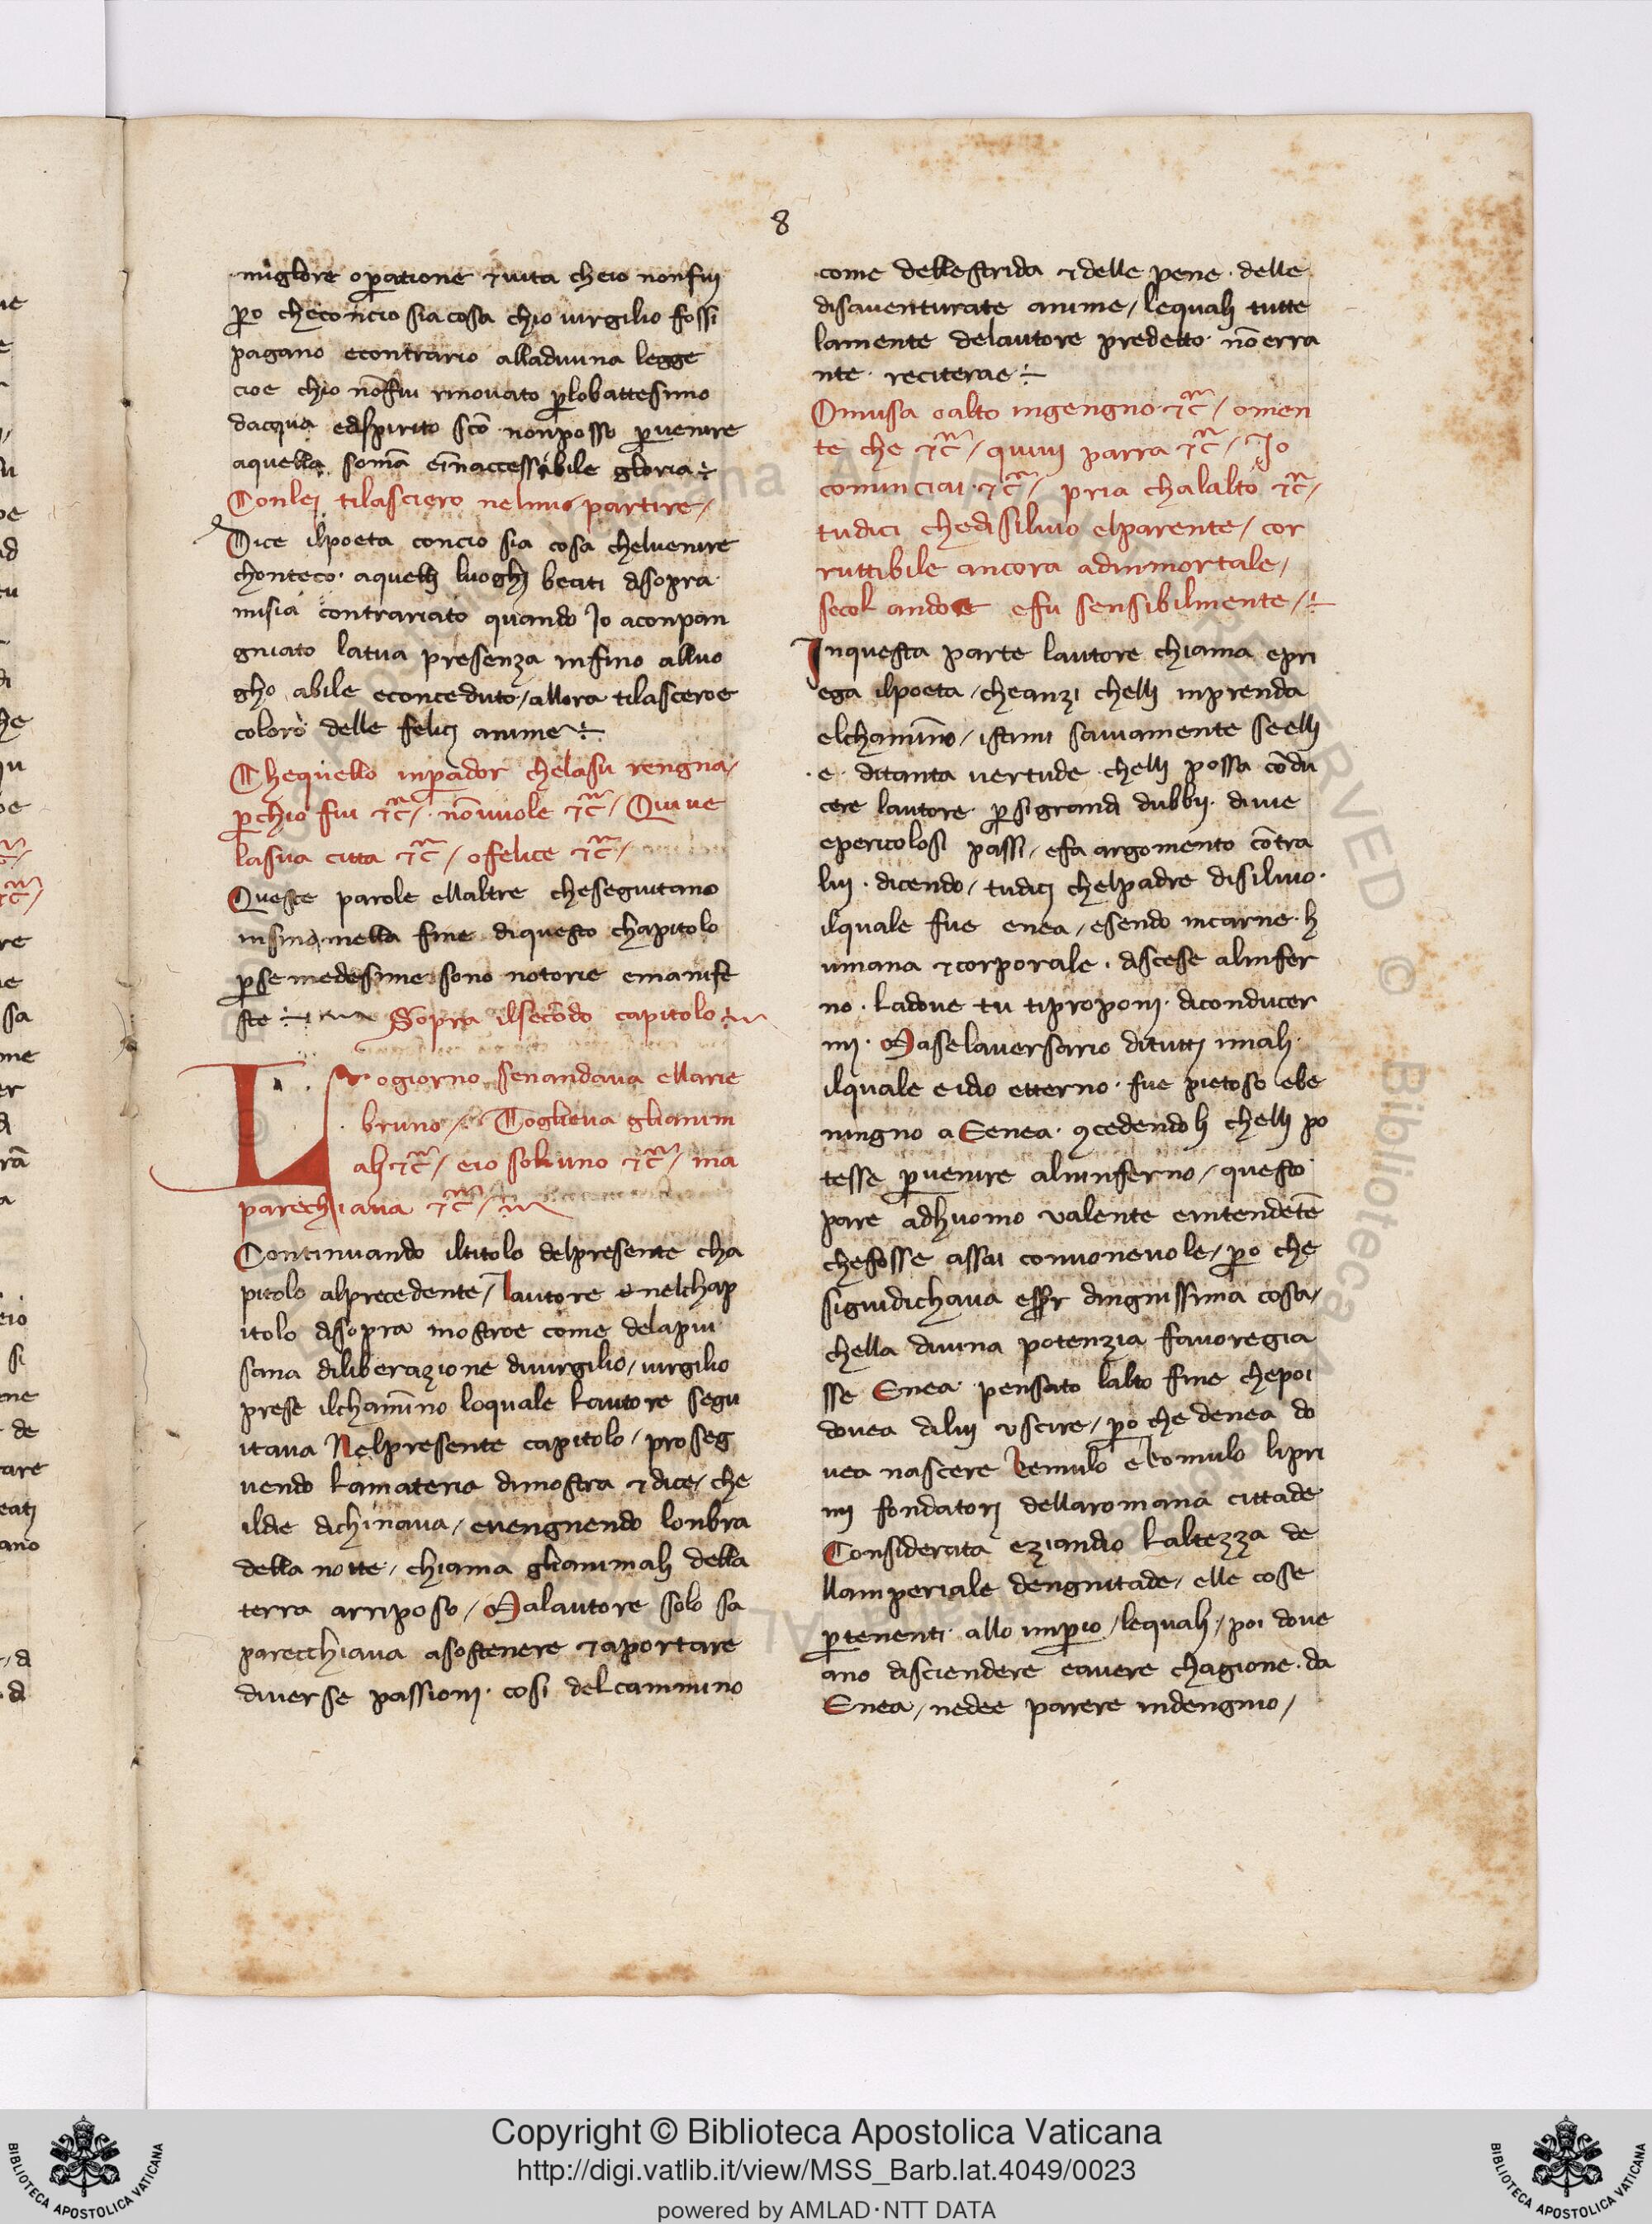 8
miglore oꝑatione ⁊ uita cheio nonfui
ꝑo checoncio siacosa chio uirgilio fossi
pagano econtrario alladiuina legge
cioe chio nōfui rinouato ꝑlobattesimo
dacqua edispirito scō nonposso ꝑuenire
aquella somā einaccessibile gloria÷
Conlei tilasciero nelmio partire/
Dice ilpoeta concio sia cosa cheluenire
chonteco· aquelli luoghi beati disopra·
misia contrariato quando Io aconpan
gniato latua presenza infino alluo
gho abile econceduto/allora tilasceroe
coloro delle felici anime÷
Chequello inꝑador chelasu rengna/
ꝑchio fui ⁊c̄/· nōuuole ⁊c̄/ Quiue
lasua citta ⁊c̄/ ofelice ⁊c̄/
Queste parole ellaltre cheseguitano
insino·nella fine diquesto chapitolo
ꝑse medesime sono notorie emanife
ste÷ Sopra ilsecōdo capitolo
Logiorno senandaua ellarie
bruno/ Toglieua glianim
ali ⁊c̄/ eio soluno ⁊c̄/ ma
parechiaua ⁊c̄/
Continuando iltitolo delpresente cha
pitolo alprecedente/ lautore enelchap
itolo disopra mostroe come delapiu
sana diliberazione diuirgilio/uirgilio
prese ilchamīno loquale Lautore segu
itaua Nelpresente capitolo/ proseg
uendo Lamateria dimostra ⁊ dice/ che
ildie dichinaua/ euengnendo lonbra
della notte/ chiama glianimali della
terra arriposo/ Malautore solo sa
parecchiaua asostenere ⁊ aportare
diuerse passioni· cosi delcammino
come dellestrida ⁊ delle pene· delle
disauenturate anime/ lequali tutte
lamente delautore predetto· nō erra
nte· reciterae÷
Omusa oalto ingengno ⁊c̄/ omen
te che ⁊c̄/ quiui parra ⁊c̄/ Io
cominciai·⁊c̄/ pria chalalto ⁊c̄/
tudici chedisiluio elparente/ cor
ruttibile ancora adinmortale/
secol andoe efu sensibilmente/÷
Inquesta parte lautore chiama epri
ega ilpoeta/ cheanzi chelli inprenda
elchamīno/ istimi sauiamente seelli
·e· ditanta uertude chelli possa cōdu
cere lautore· ꝑ sigrandi dubbij· diuie
epericolosi passi/ efa argomento cōtra
lui· dicendo/ tudici chelpadre disiluio·
ilquale fue enea/ esendo incarne·
umana ⁊ corporale· discese alinfer
no· Ladoue tu tiproponi· diconducer
mi· Maselauersario ditutti imali·
ilquale eidio etterno· fue pietoso ebe
ningno a Eenea· ꝯcedendoli chelli po
tesse ꝑuenire alininferno/ questo
pare adhuomo ualente eintendētē
chefosse assai conuoneuole/ ꝑo che
sigiudichaua esser dingnissima cosa/
chella diuina potenzia fauoregia
sse Enea· pensato lalto fine chepoi
douea dilui uscire/ ꝑo che denea do
uea nascere Remulo eRomulo lipri
mi fondatori dellaromana cittade·
Considerata eziandio Laltezza de
llamperiale dengnitade/ elle cose
ꝑtenenti· allo imꝑio/lequali/ poi doue
ano discendere eauere chagione· da
Enea/ nedee parere indengnio/
Copyright © Biblioteca Apostolica Vaticana
http://digi.vatlib.it/view/MSS_Barb.lat.4049/0023
powered by AMLAD·NTT DATA
BIBLIOTECA APOSTOLICA VATICANA
BIBLIOTECA APOSTOLICA VATICANA